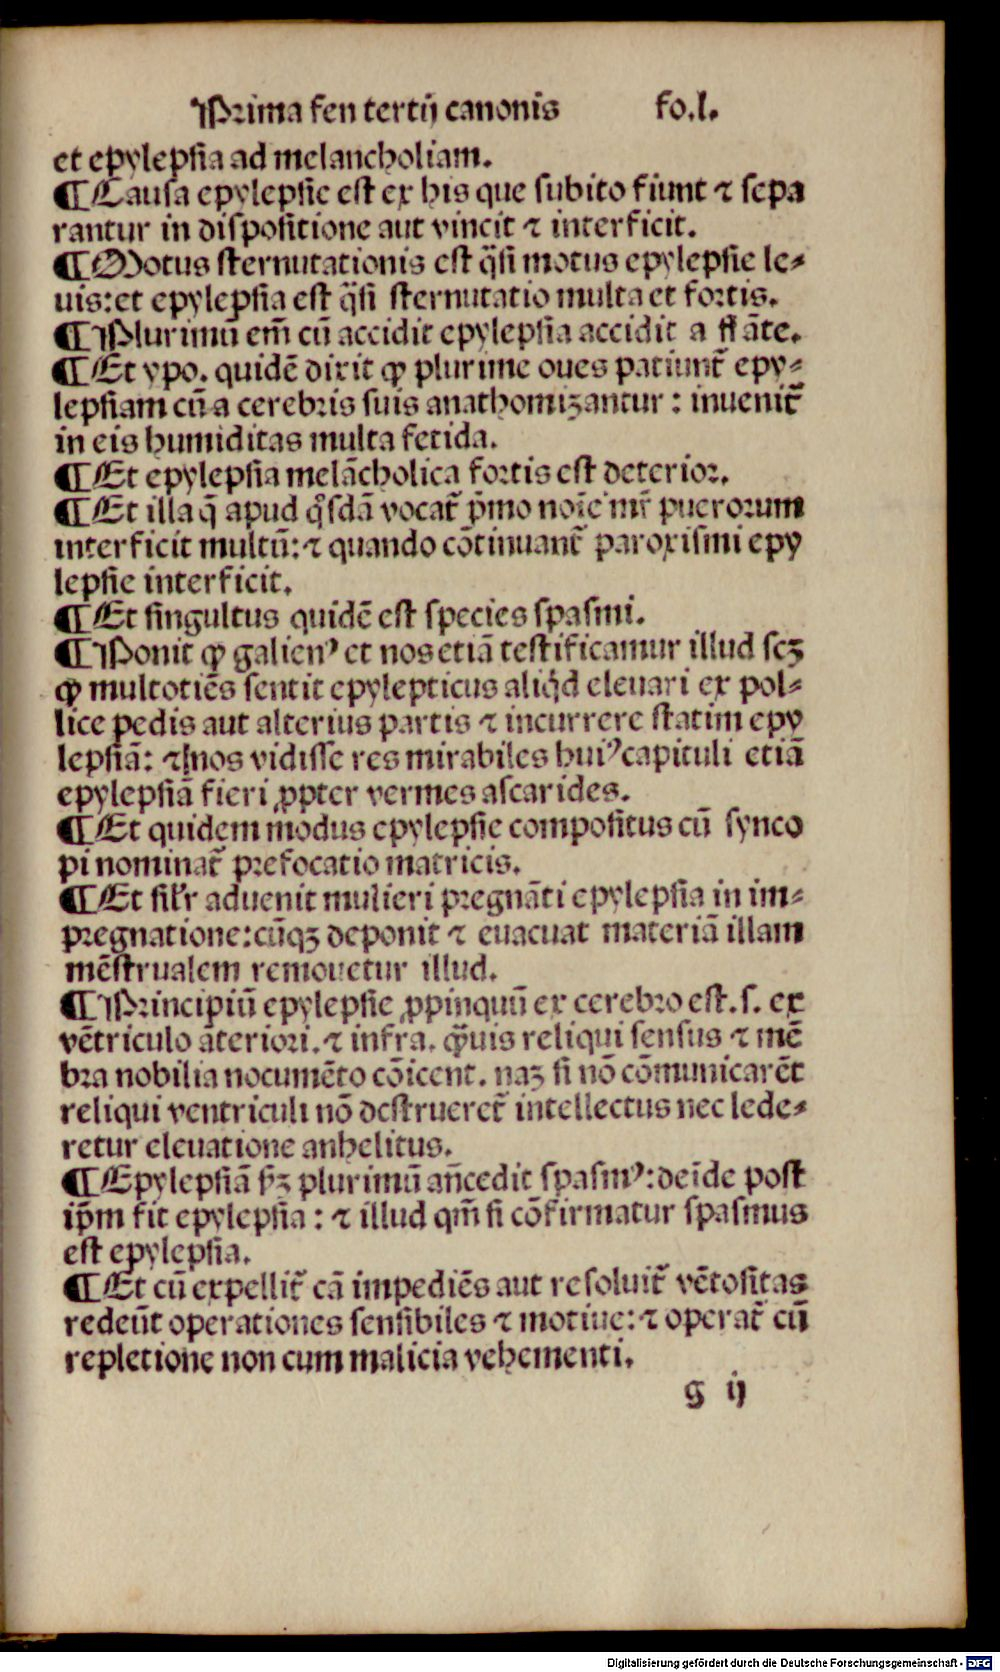 Prima fen tertij canonis fo.l.
et epylepsia ad melancholiam.
¶ Causa epylepsie est ex his que subito fiunt ⁊ sepa
rantur in dispositione aut vincit ⁊ interficit.
¶ Motus sternutationis est q̃si motus epylepsie le⸗
uis: et epylepsia est q̃si sternutatio multa et fortis.
¶ Plurimũ em̃ cũ accidit epylepsia accidit a fl̃ate.
¶ Et ypo. quidẽ dixit ꝙ plurime oues patiunt̃ epy⸗
lepsiam cũ a cerebris suis anathomizantur : inuenit̃
in eis humiditas multa fetida.
¶ Et epylepsia melãcholica fortis est deterior.
¶ Et illa q̃ apud q̃sdã vocat̃ p̃mo noĩe mr̃ puerorum
interficit multũ: ⁊ quando cõtinuant̃ paroxismi epy
lepsie interficit.
¶ Et singultus quidẽ est species spasmi.
¶ Ponit ꝙ galienꝰ et nos etiã testificamur illud scꝫ
ꝙ multotiẽs sentit epylepticus aliq̇d eleuari ex pol⸗
lice pedis aut alterius partis ⁊ incurrere statim epy
lepsiã: ⁊ nos vidisse res mirabiles huiꝰ capituli etiã
epylepsiã fieri ꝓpter vermes ascarides.
¶ Et quidem modus epylepsie compositus cũ synco
pi nominat̃ prefocatio matricis.
¶ Et sil̃r aduenit mulieri pregnãti epylepsia in im⸗
pregnatione: cũqꝫ deponit ⁊ euacuat materiã illam
mẽstrualem remouetur illud.
¶ Principiũ epylepsie ꝓpinquũ ex cerebro est .s. ex
vẽtriculo ãteriori. ⁊ infra. q̃uis reliqui sensus ⁊ mẽ
bra nobilia nocumẽto cõicent. naꝫ si nõ cõmunicarẽt
reliqui ventriculi nõ destrueret̃ intellectus nec lede⸗
retur eleuatione anhelitus.
¶ Epylepsiã ẜꝫ plurimũ añcedit spasmꝰ: deĩde post
ip̃m fit epylepsia : ⁊ illud qm̃ si cõfirmatur spasmus
est epylepsia.
¶ Et cũ expellit̃ cã impediẽs aut resoluit̃ vẽtositas
redeũt operationes sensibiles ⁊ motiue: ⁊ operat̃ cũ
repletione non cum malicia vehementi.
g ij
Digitalisierung gefördert durch die Deutsche Forschungsgemeinschaft - DFG